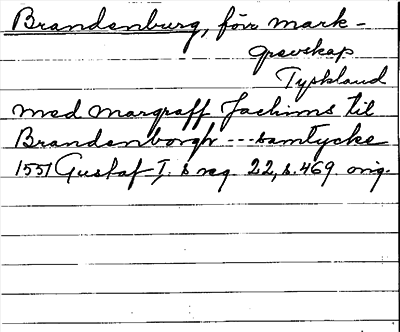 Brandenburg, förr mark-
grevskap
Tyskland
med margraff Jachims til
Brandenborgh --- samtycke
1551 Gustaf I. s reg. 22, s. 469. orig.